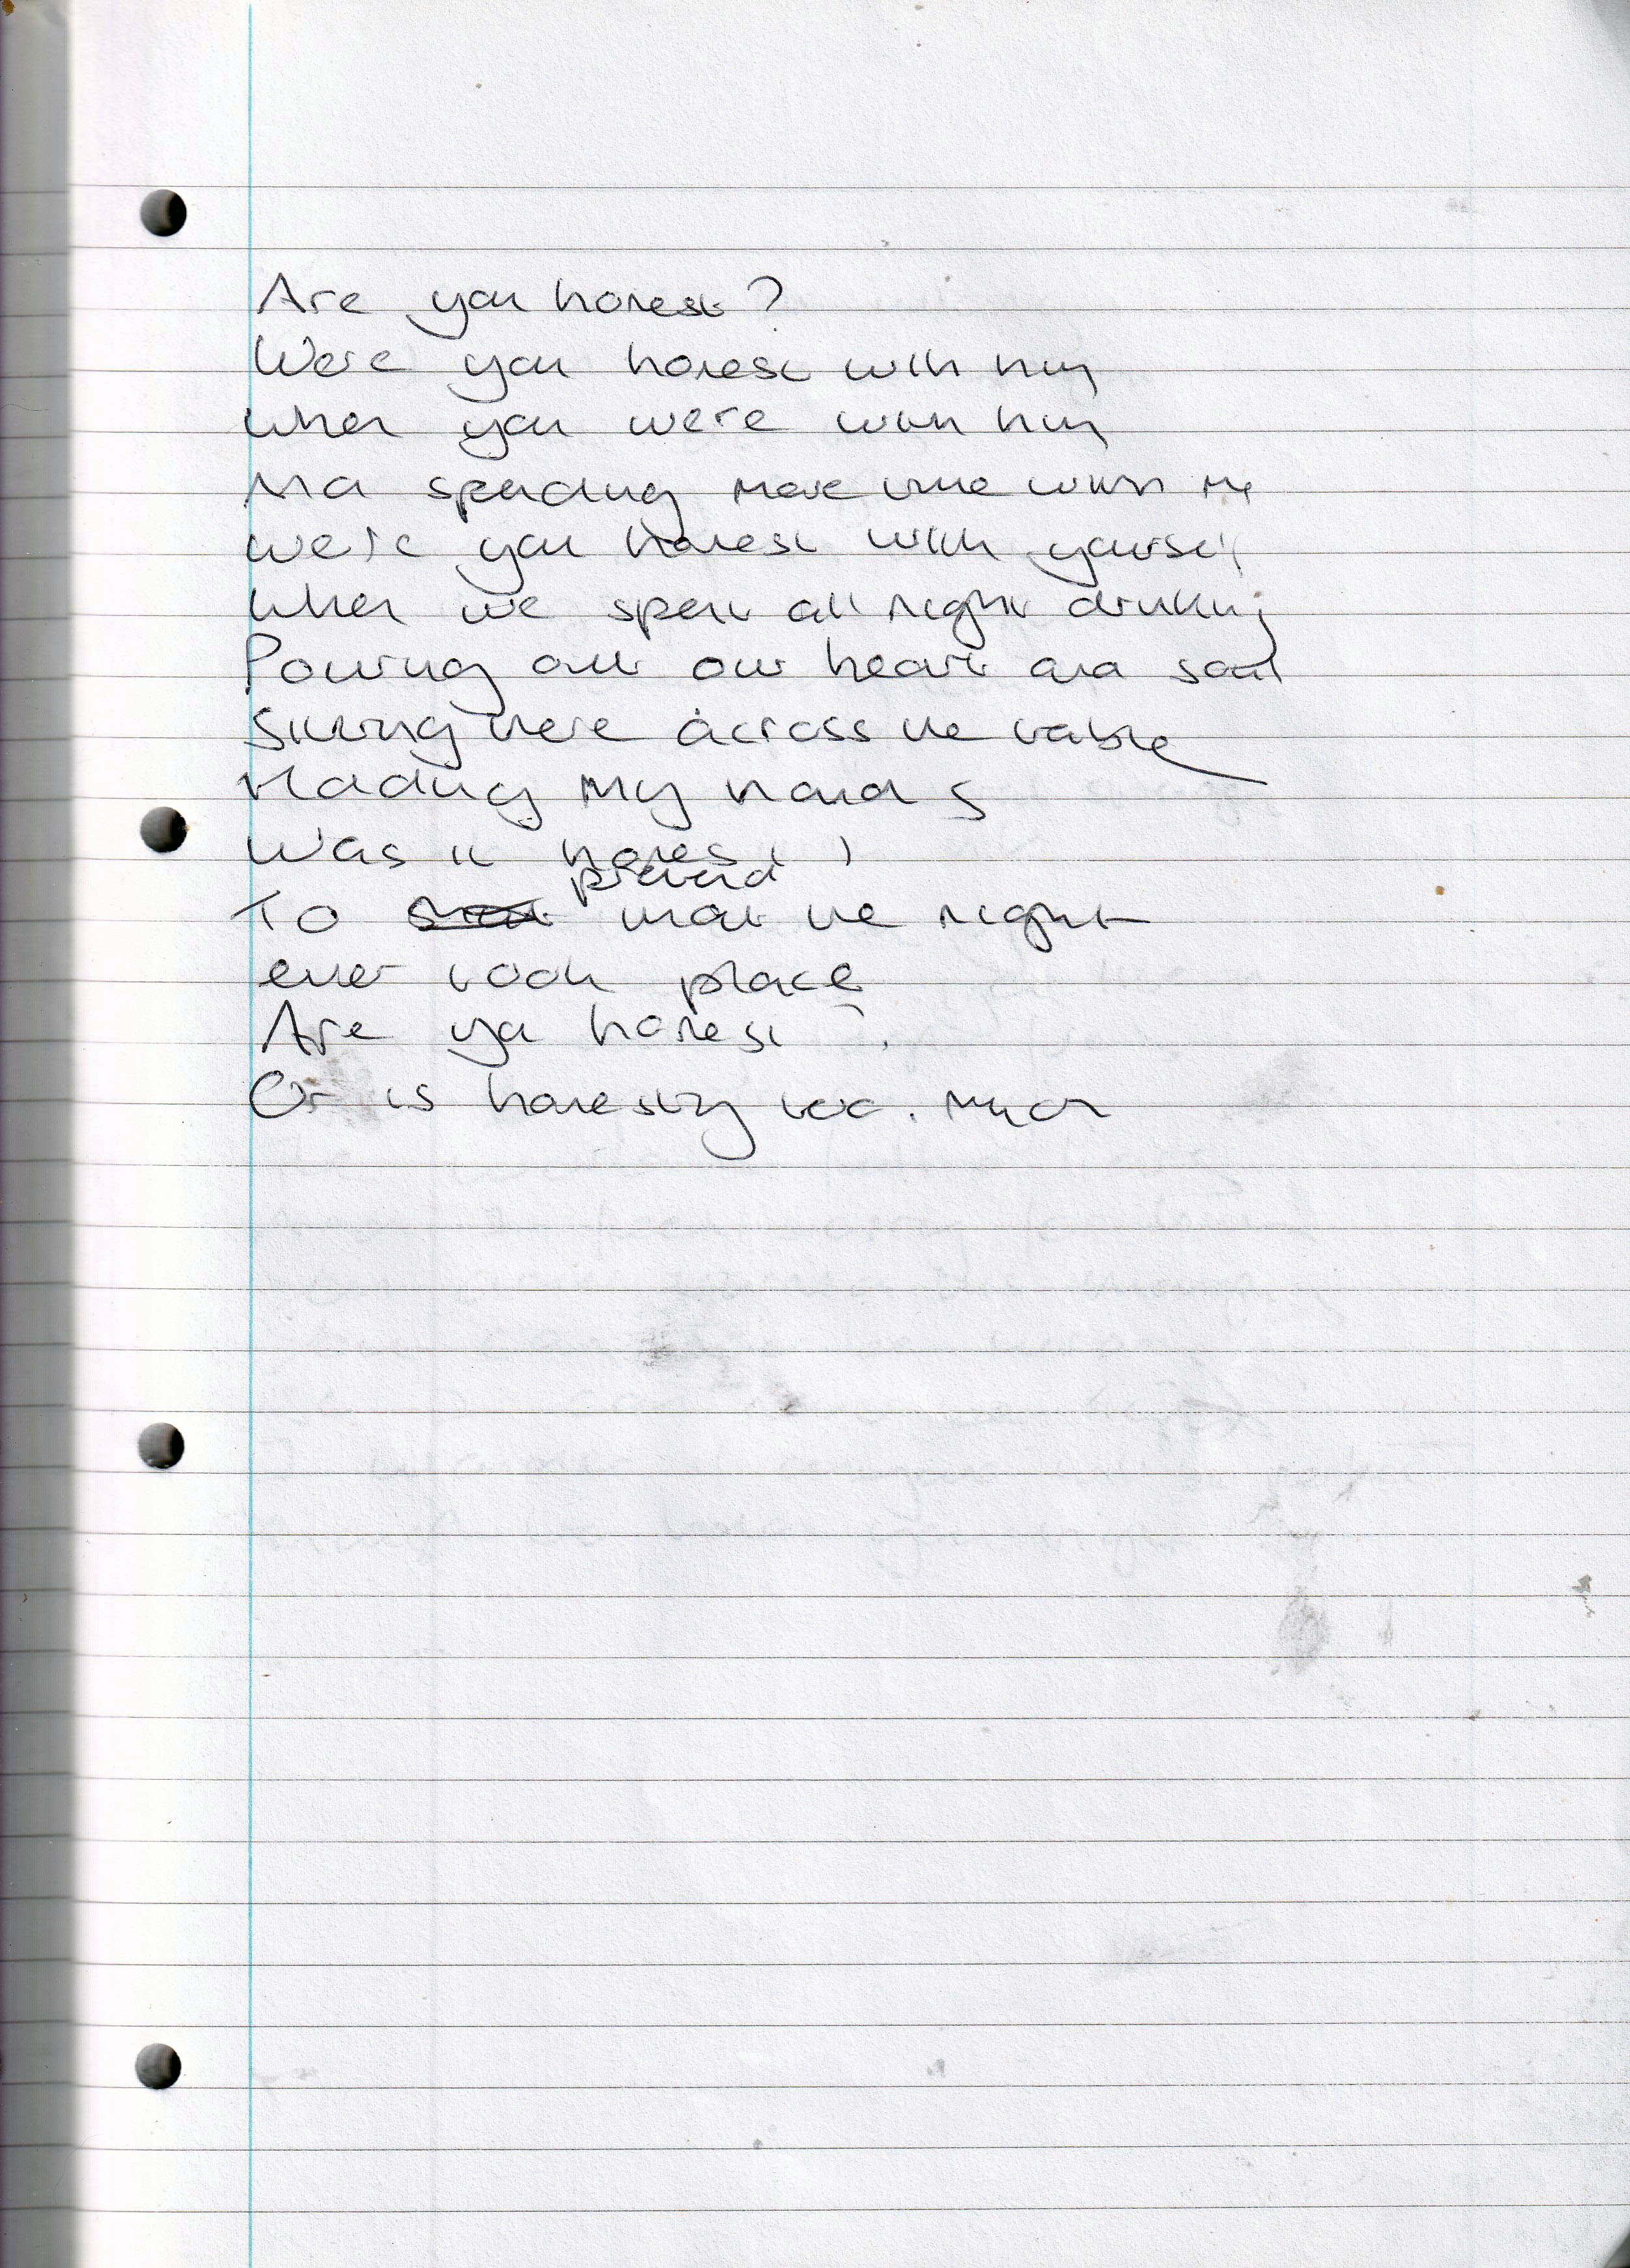 Are you honest?
Were you honest with him
When you were with him
And spending more time with me
Were you honest with yourself
When we spent all night drinking
Pouring out our heart and soul
Sitting there across the table
Holding my hands
Was it honest?
To pretend that the night
ever took place
Are you honest?
Or is honesty too much